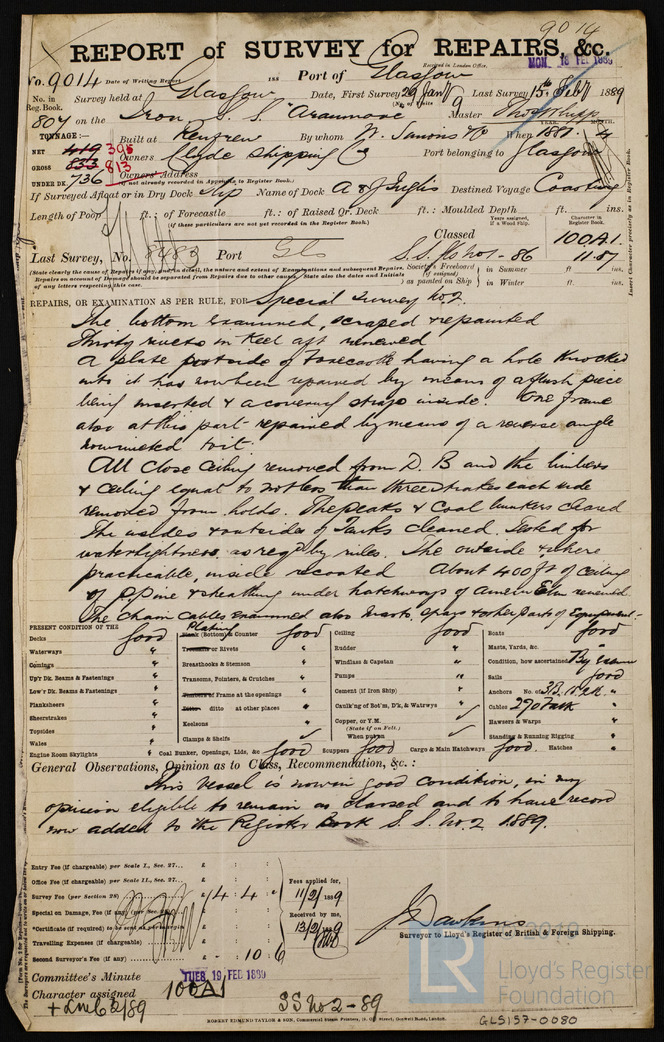 9014
REPORT of SURVEY for REPAIRS, &c.
Received in London Office.
MON. 18 FEB 1889
No. 9014 Date of Writing Report 188 Port of Glasgow
No. in Reg. Book. Survey held at Glasgow Date, First Survey 26 Jany Last Survey 15th Feby 1889
(No. of Visits 9
807 on the Iron S. S. "Aranmore" Master
TONNAGE:— Built at Renfrew By whom W. Simons & Co When 1881. 4
NET 419 395
GROSS 833 813 Owners Clyde Shipping Co Port belonging to Glasgow
UNDER DK. 736 Owners' Address
(if not already recorded in Appendix to Register Book.)
If Surveyed Afloat or in Dry Dock Slip Name of Dock A & J Inglis Destined Voyage Coasting
Length of Poop ft.: of Forecastle ft.: of Raised Qr. Deck ft.: Moulded Depth ft. ins.
(if these particulars are not yet recorded in the Register Book.)
Years assigned, if a Wood Ship.
Character in Register Book.
Classed 100A1.
Last Survey, No. 8483 Port Gls S.S. Gls No1 - 86 11.87
(State clearly the cause of Repairs if any, and in detail, the nature and extent of Examinations and subsequent Repairs. Repairs on account of Damage should be separated from Repairs due to other causes. State also the Dates and Initials of any letters respecting this case.
Society's Freeboard (if assigned) as painted on Ship in Summer ft ins.
in Winter ft. ins.
Insert Character precisely as in Register Book.
REPAIRS, OR EXAMINATION AS PER RULE, FOR Special Survey No2.
The bottom examined, scraped & repainted
Thirty rivets in Keel aft renewed
A plate portside of Forecastle having a hole knocked
into it has now been repaired by means of a flush piece
being inserted & a covering strap inside. One frame
also at this part repaired by means of a reverse angle
now riveted to it.
All close Ceiling removed from D. B and the limbers
& Ceiling equal to not less than three strakes each side
removed from holds. The peaks & Coal bunkers cleared
The insides & outsides of Tanks cleaned. Tested for
watertightness as reqd by rules. The outside & where
practicable, inside recoated About 400 ft of Ceiling
of P. Pine & sheathing under hatchways of Amern Elm renewed.
The Chain Cables examined also Masts, spars & other parts of Equipment.
PRESENT CONDITION OF THE
Decks Good
Waterways "
Comings "
Up'r Dk. Beams & Fastenings "
Low'r Dk. Beams & Fastenings "
Planksheers "
Sheerstrakes "
Topsides "
Wales "
Engine Room Skylights "
Plating
Plank (Bottom) & Counter Good
Treenails or Rivets "
Breasthooks & Stemson "
Transoms, Pointers, & Crutches "
Timbers of Frame at the openings "
Ditto ditto at other places "
Keelsons "
Clamps & Shelfs
Coal Bunker, Openings, Lids, &c Good
Ceiling Good
Rudder "
Windlass & Capstan "
Pumps "
Cement (if Iron Ship) "
Caulk'ng of Bot'm, D'k, & Watrwys
Copper, or Y.M.
(State if on Felt.)
When put on
Scuppers Good Cargo & Main Hatchways Good. Hatches "
Boats Good
Masts, Yards, &c. "
Condition, how ascertained By exam
Sails Good
Anchors No. of "
Cables 270 Fath "
Hawsers & Warps "
Standing & Running Rigging "
General Observations, Opinion as to Class, Recommendation, &c.:
This Vessel is now in good Condition, in my
opinion eligible to remain as classed and to have record
now added to the Register Book S. S. No. 2 1889.
Entry Fee (if chargeable) per Scale I., Sec. 27... £ : :
Office Fee (if chargeable) per Scale II., Sec. 27... £ : :
Survey Fee (per Section 28) £ 14 : 4 :
Special on Damage, Fee (if any)
*Certificate (if required) to be sent as per margin
Travelling Expenses (if chargeable) £ : :
Second Surveyor's Fee (if any) £ - 10 : 6
Fees applied for, 11/2/1889
Received by me, 13/2/1889
J. Dawkins
Surveyor to Lloyd's Register of British & Foreign Shipping.
Committee's Minute TUES. 19 FEB 1889
Character assigned 100A1
SS No 2 - 89
+ LMC 2/89
ROBERT EDMUND TAYLOR & SON, Commercial Steam Printers
LR
Lloyd's Register
Foundation
GLS157-0080